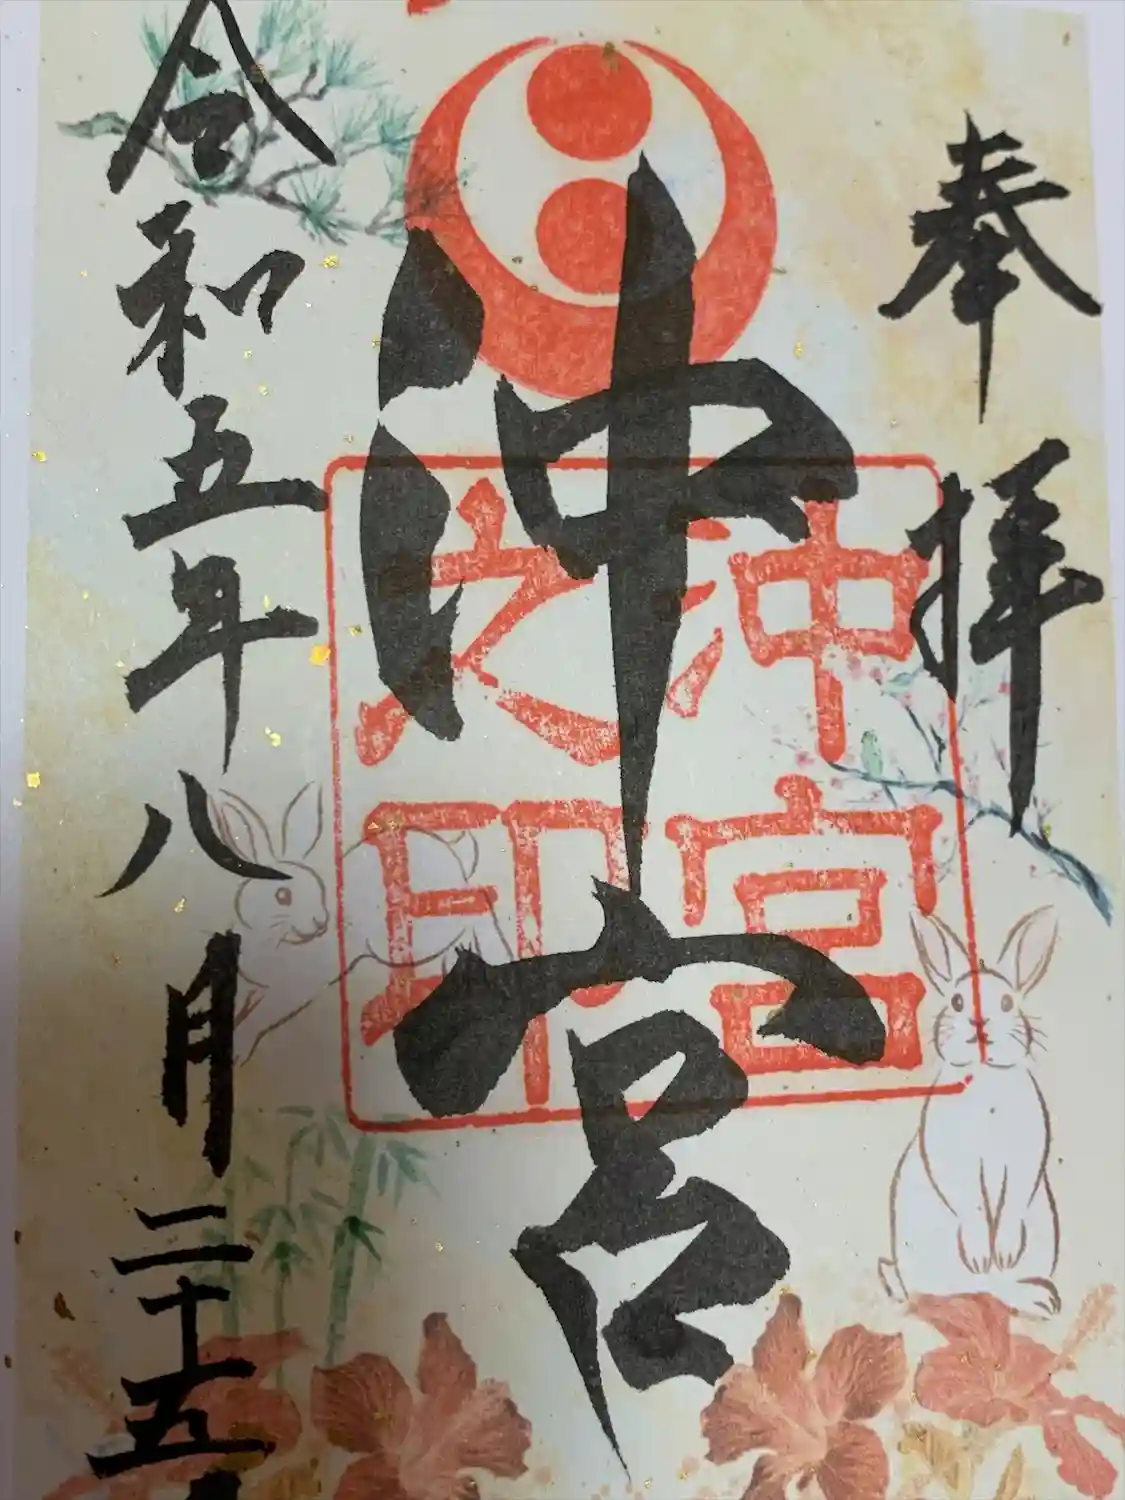 奉拝
沖宮
沖宮
之印
令和五年八月二十五